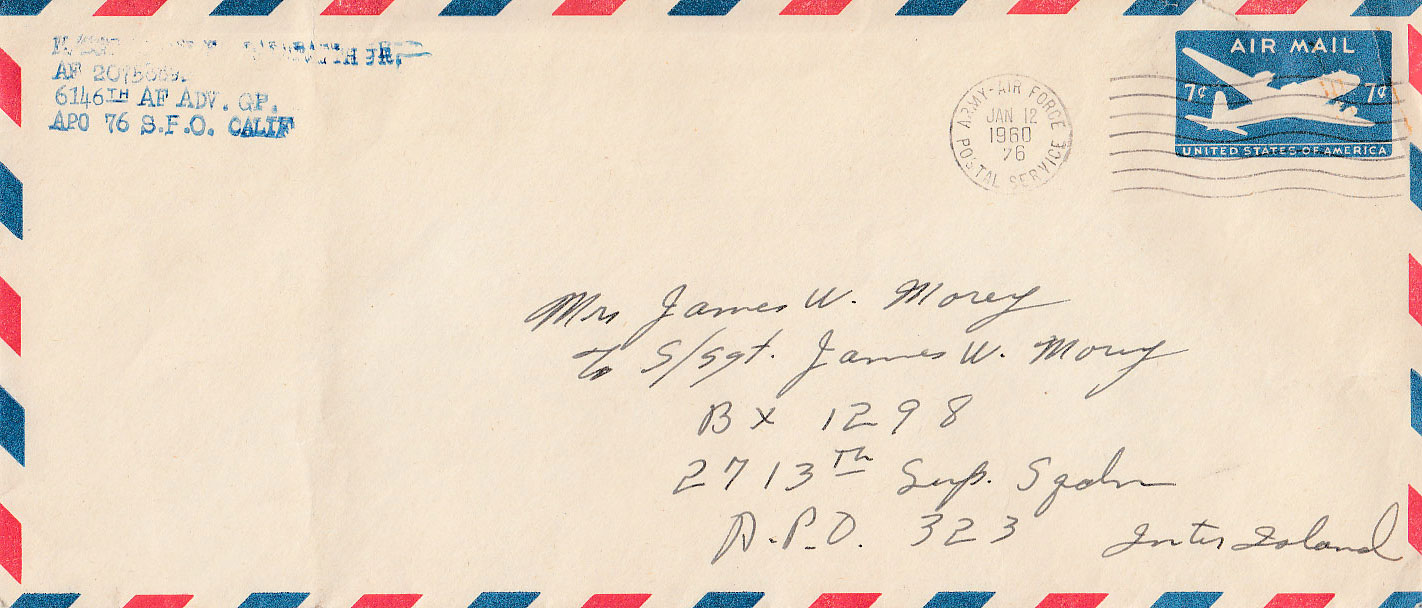 JR.
AF
6146TH AF ADV. GP.
APO 76 S.F.O. CALIF
ARMY-AIR FORCE
JAN 12
1960
76
POSTAL SERVICE
AIR MAIL
7¢ 7¢
UNITED STATES OF AMERICA
Mrs James W. Morey
c/o S/Sgt. James W. Morey
Bx 1298
2713th Sup. Sqdn
A.P.O. 323 Inter Island